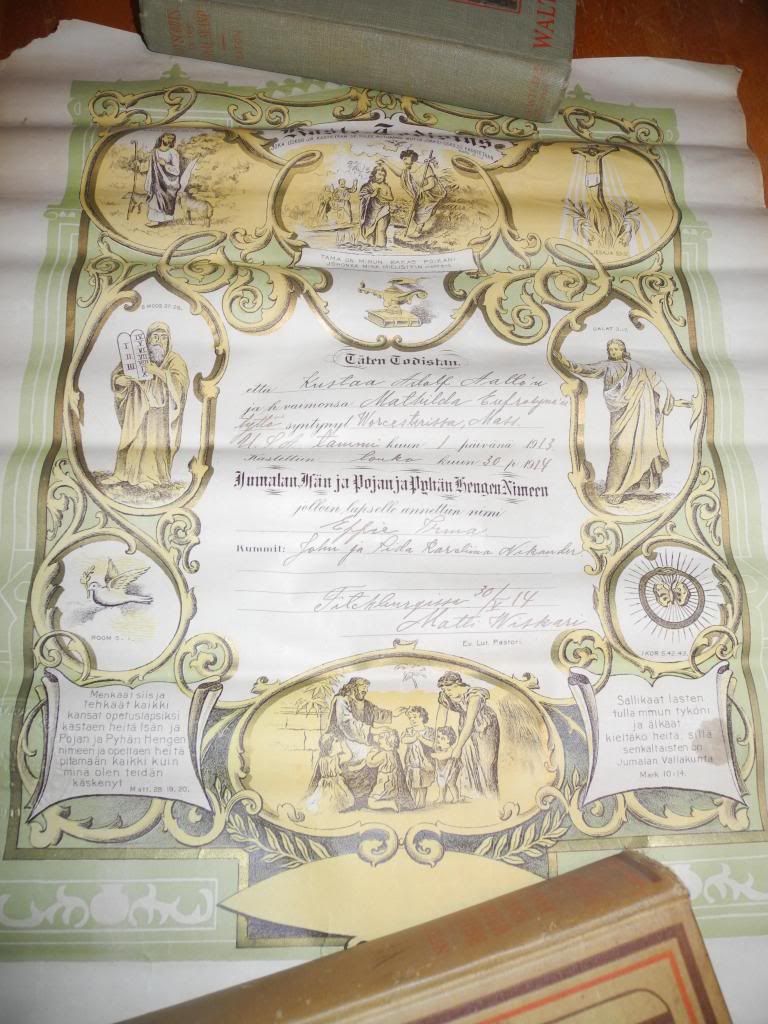 WALT
Kaste Todistus
TÄMÄ ON MINUN RAKAS POIKANI
JOHONKA MINÄ MIELISTYIN
JESAJA 53:5
GALAT. 3:13.
Täten Todistan.
että Kustaa Adolf Aallon
ja h. vaimonsa Mathilda Eufrosyna'n
tyttö syntynyt Worcesterissa, Mass.
U.S.A. tammi kuun 1 päivänä 1913
Kastettiin touko kuun 30 p. 1914
Jumalan Isän ja Pojan ja Pyhän Hengen Nimeen
jolloin lapselle annettiin nimi
Effie Irma
Kummit: John ja Lida Karolina Nikander
Fitchburgissa 30/V -14
Matti Wiskari
Ev. Lut. Pastori.
ROOM
I KOR. 5.42.43.
Menkäät siis ja
tehkäät kaikki
kansat opetuslapsiksi
kastaen heitä Isän ja
Pojan ja Pyhän Hengen
nimeen ja opettaen heitä
pitämään kaikki kuin
minä olen teidän
käskenyt Matt. 28. 19, 20.
Sallikaat lasten
tulla minun tyköni
ja älkäät
kieltäkö heitä, sillä
senkaltaisten on
Jumalan Valtakunta
Mark. 10-14.